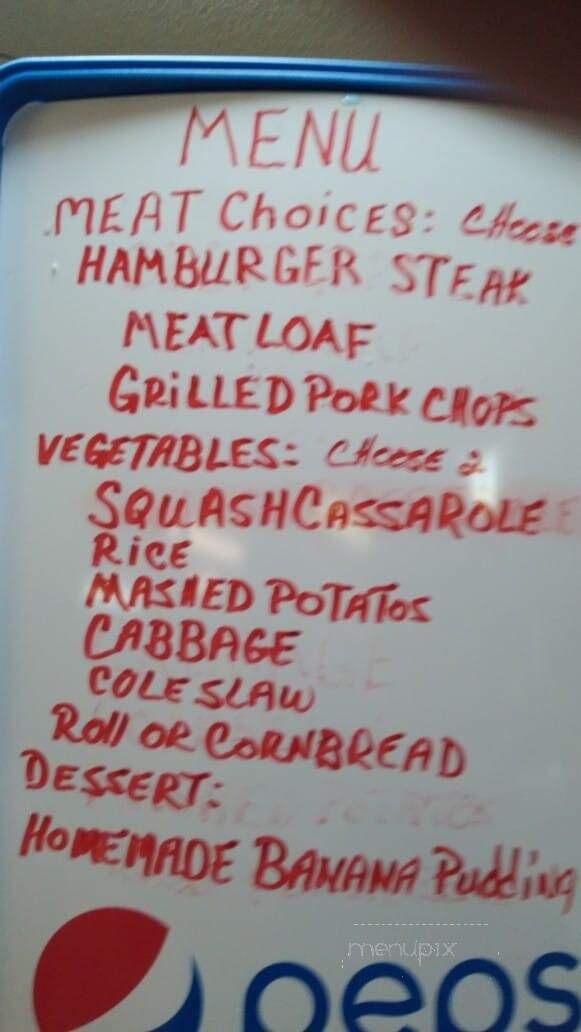 MENU
MEAT CHOiCES: CHOOSE
HAMBURGER STEAK
MEAT LOAF
GRiLLED PORK CHOPS
VEGETABLES: CHOOSE 2
SQUASH CASSAROLE
RiCE
MASHED POTATOS
CABBAGE
COLE SLAW
Roll OR CORNBREAD
DESSERT:
HOMEMADE BANANA Pudding
menupix
peps